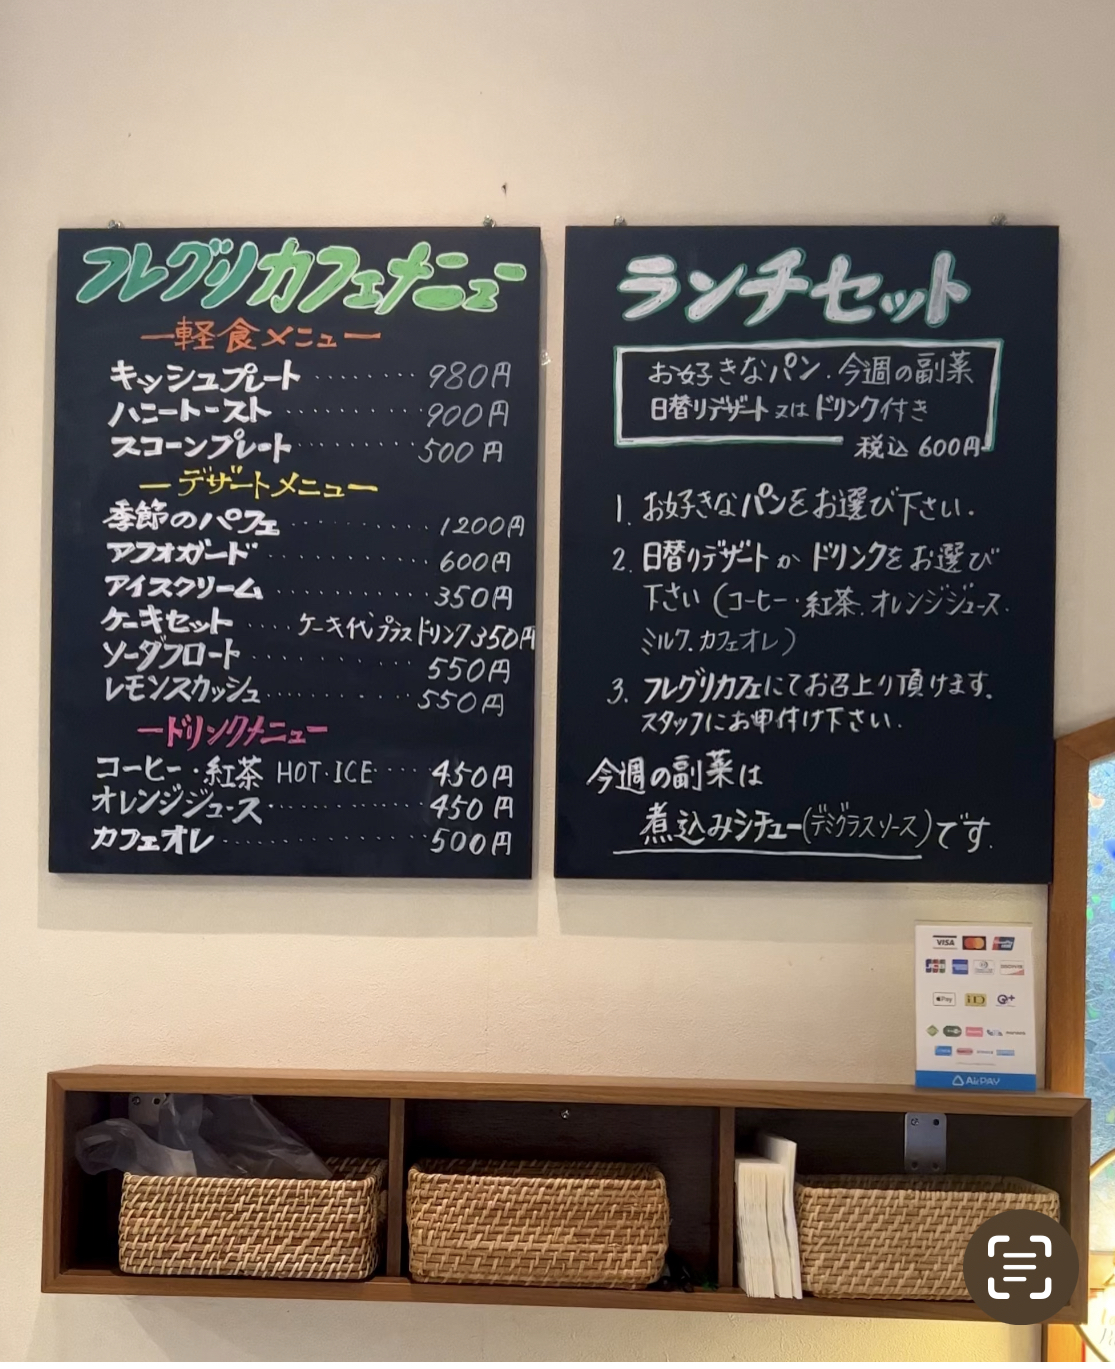 フレグリカフェメニュー
ー軽食メニューー
キッシュプレート・・・・・・・・980円
ハニートースト・・・・・・・・・900円
スコーンプレート・・・・・・・・500円
ーデザートメニューー
季節のパフェ・・・・・・・・1200円
アフォガード・・・・・・・・600円
アイスクリーム・・・・・・・350円
ケーキセット・・・・ケーキ代プラスドリンク350円
ソーダフロート・・・・・・・550円
レモンスカッシュ・・・・・・・550円
ードリンクメニューー
コーヒー・紅茶 HOT・ICE・・・・450円
オレンジジュース・・・・・・・・450円
カフェオレ・・・・・・・・・・500円
ランチセット
お好きなパン・今週の副菜
日替りデザート又はドリンク付き
税込600円
1. お好きなパンをお選び下さい.
2. 日替りデザートかドリンクをお選び
下さい(コーヒー・紅茶.オレンジジュース.
ミルク.カフェオレ)
3. フレグリカフェにてお召上り頂けます.
スタッフにお申付け下さい.
今週の副菜は
煮込みシチュー(デミグラスソース)です.
VISA
JCB
DISCOVER
Pay
iD
AirPAY